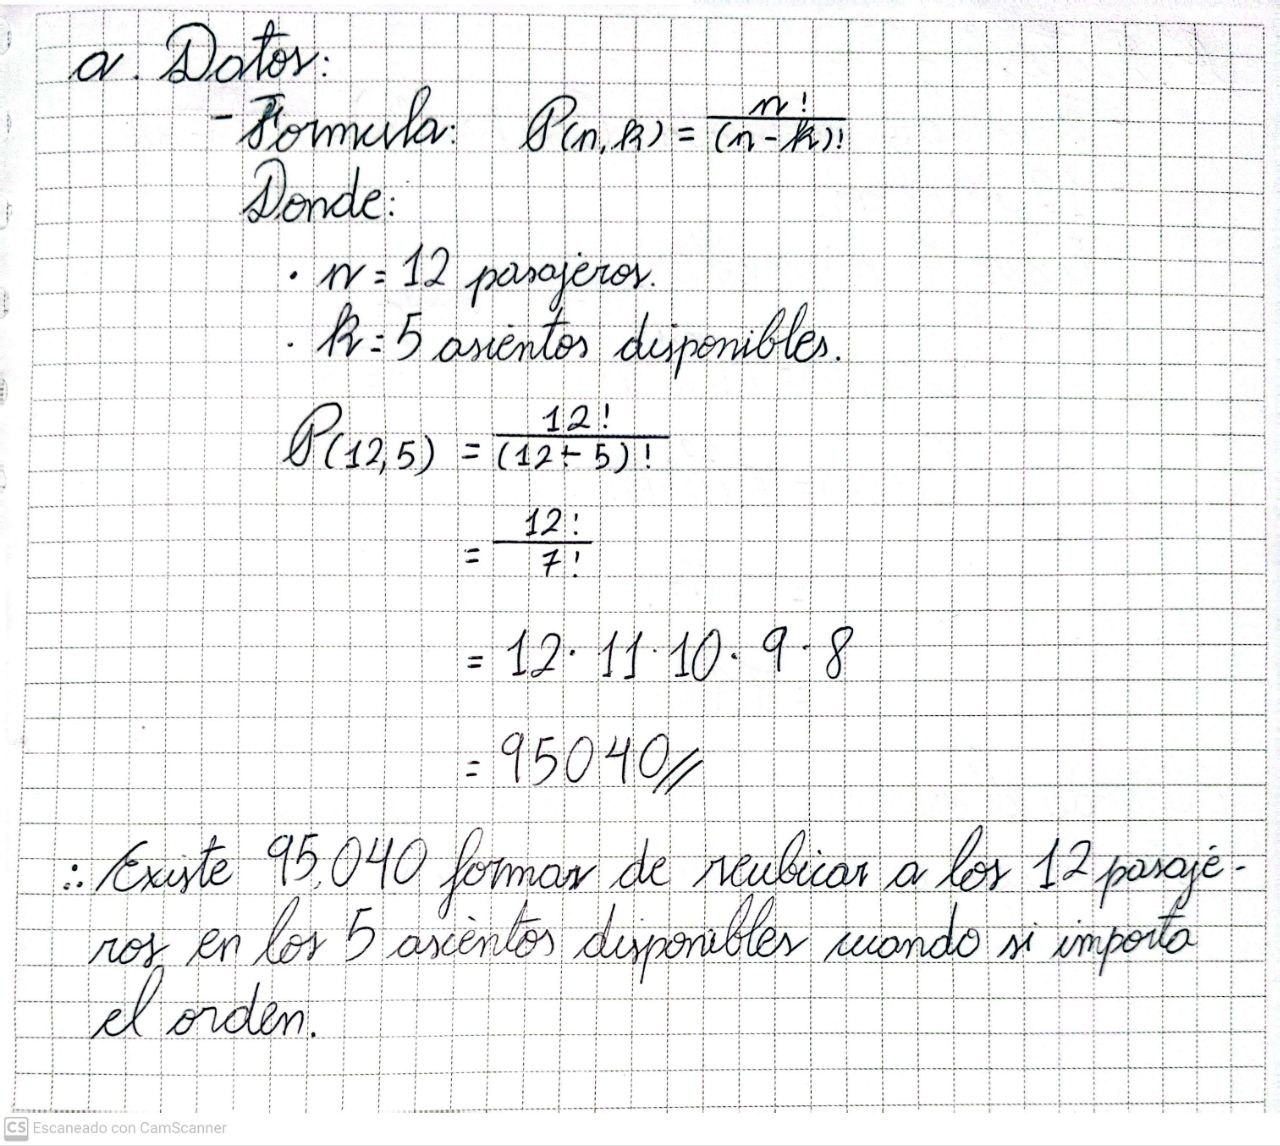 a. Datos:
- Formula: P(n,k) = n! / (n-k)!
Donde:
• n = 12 pasajeros.
• k = 5 asientos disponibles.
P(12,5) = 12! / (12-5)!
= 12! / 7!
= 12·11·10·9·8
= 95040//
∴ Existe 95.040 formas de reubicar a los 12 pasaje-
ros en los 5 asientos disponibles cuando si importa
el orden.
CS Escaneado con CamScanner